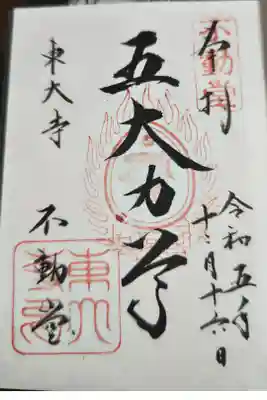 奉拝
不動堂
令和五年
十一月十六日
五大力尊
東大寺
不動堂